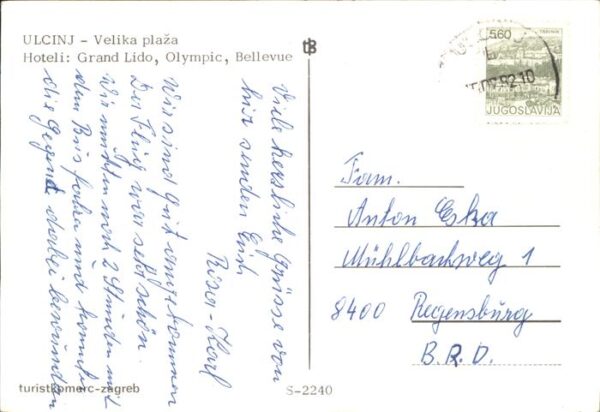 ULCINJ – Velika plaža
Hoteli: Grand Lido, Olympic, Bellevue
Viele herzliche Grüsse von
hier senden Euch
Karl
Wir sind gut angekommen
Der Flug war sehr schön.
Wir mußten noch 2 Stunden mit
dem Bus fahren und konnten
die Gegend dabei bewundern
5,60
TREBINJE
JUGOSLAVIJA
Fam.
Anton Eska
Mühlbachweg 1
8400 Regensburg
B.R.D.
turistkomerc-zagreb
S-2240